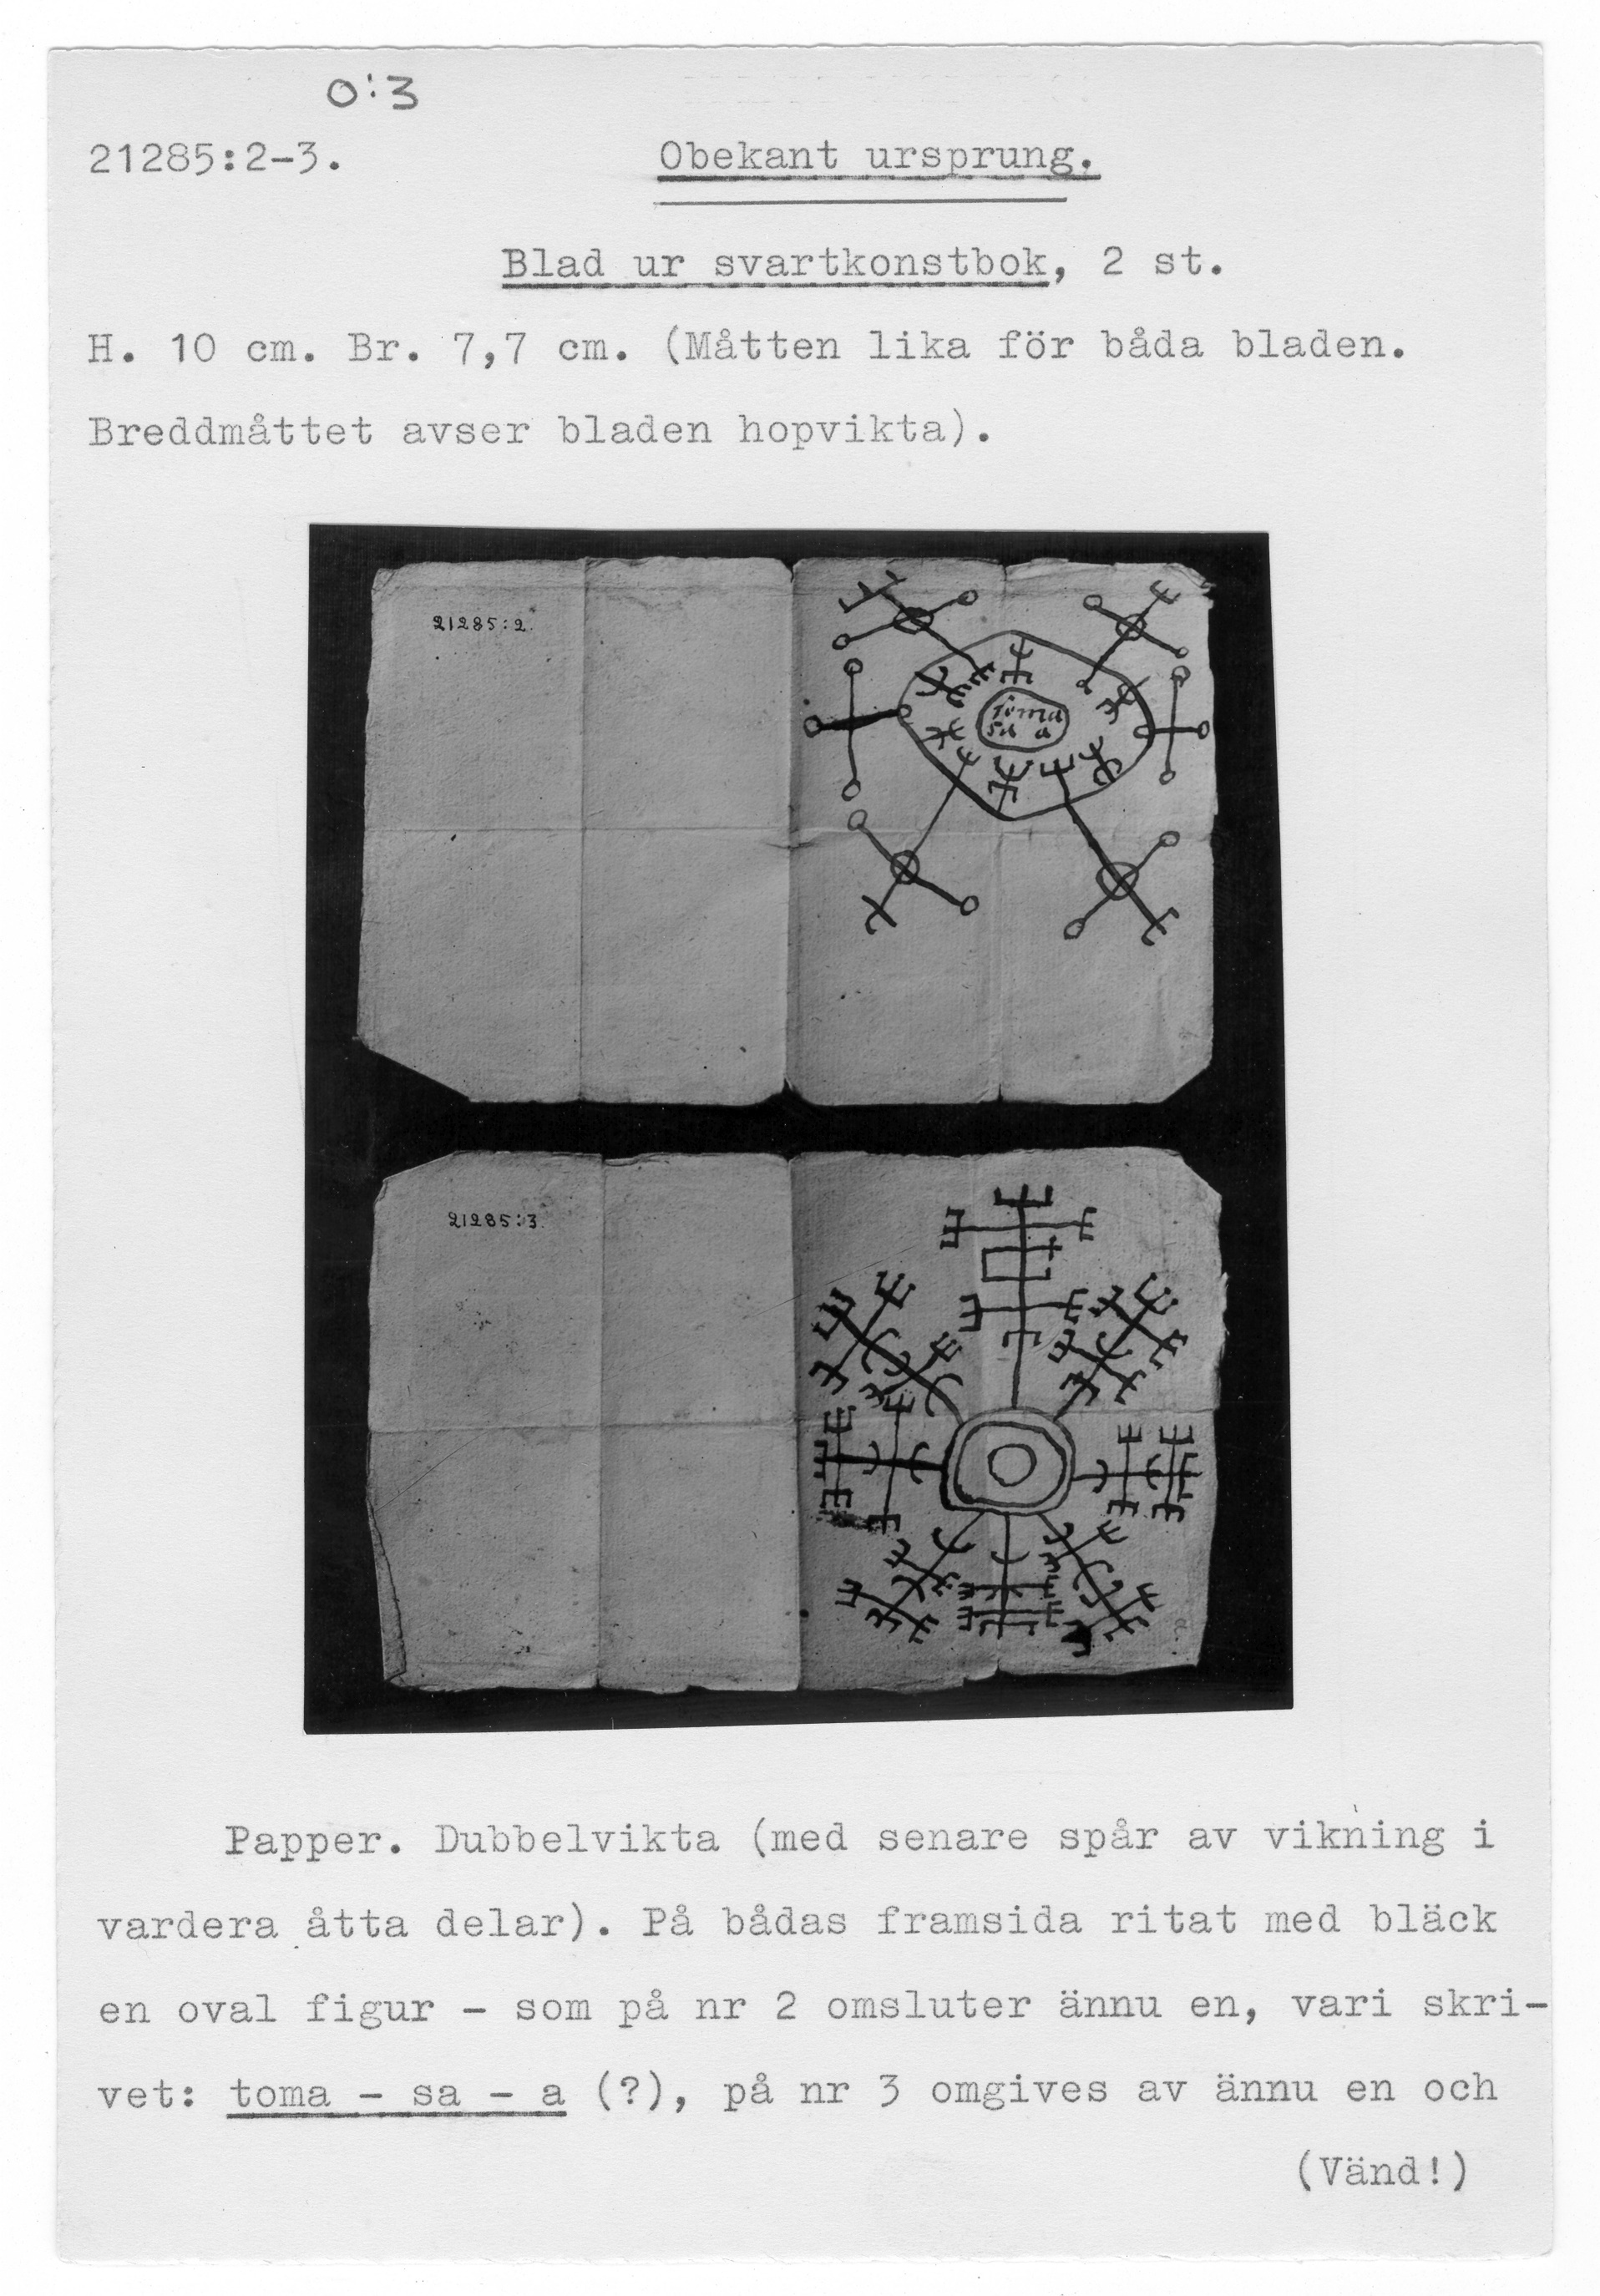 O:3
21285:2-3.
Obekant ursprung.
Blad ur svartkonstbok, 2 st.
H. 10 cm. Br. 7,7 cm. (Måtten lika för båda bladen.
Breddmåttet avser bladen hopvikta).
21285:2.
toma
sa a
21285:3.
Papper. Dubbelvikta (med senare spår av vikning i
vardera åtta delar). På bådas framsida ritat med bläck
en oval figur - som på nr 2 omsluter ännu en, vari skri-
vet: toma - sa - a (?), på nr 3 omgives av ännu en och
(Vänd!)